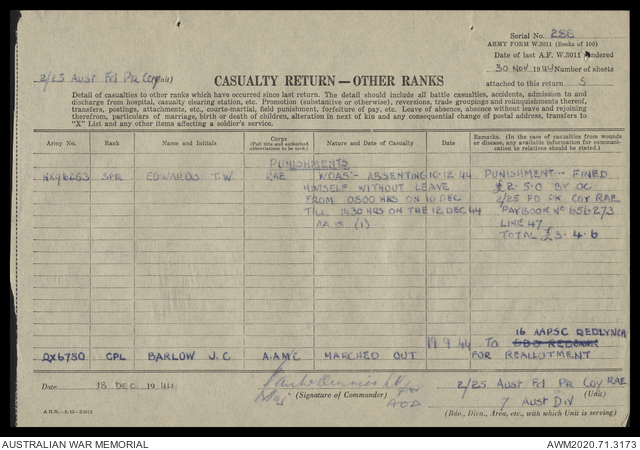 Serial No. 286
ARMY FORM W.3011 (Books of 100)
Date of last A.F. W.3011 rendered
30 NOV 1944 Number of sheets
attached to this return 5
2/25 Aust Fd Pk Coy (Unit)
CASUALTY RETURN—OTHER RANKS
Detail of casualties to other ranks which have occurred since last return. The detail should include all battle casualties, accidents, admission to and
discharge from hospital, casualty clearing station, etc. Promotion (substantive or otherwise), reversions, trade groupings and relinquishments thereof,
transfers, postings, attachments, etc., courts-martial, field punishment, forfeiture of pay, etc. Leave of absence, absence without leave and rejoining
therefrom, particulars of marriage, birth or death of children, alteration in next of kin and any consequent change of postal address, transfers to
"X" List and any other items affecting a soldier's service.
Army No. Rank Name and Initials Corps (Full title and authorised abbreviations to be used.) Nature and Date of Casualty Date Remarks. (In the case of casualties from wounds or disease, any available information for communication to relatives should be stated.)
PUNISHMENTS
SPR EDWARDS T.W RAE WOAS:- ABSENTING 10-12-44 PUNISHMENT:- FINED
HIMSELF WITHOUT LEAVE £2.5.0 BY OC
FROM 0500 HRS ON 10 DEC 2/25 FD PK COY RAE
TILL 1430 HRS ON THE 12 DEC 44 PAYBOOK No 656273
AA 15 (1) LINE 47
TOTAL £3.4.6
16 AAPSC REDLYNCH
QX6750 CPL BARLOW J.C A.A.M.C MARCHED OUT 19 9 44 TO
FOR REALLOTMENT
Date 15 DEC 1944
Maj (Signature of Commander)
2/25 Aust Fd Pk Coy RAE
(Unit)
7 Aust Div
(Bde., Divn., Area, etc., with which Unit is serving)
AUSTRALIAN WAR MEMORIAL AWM2020.71.3173